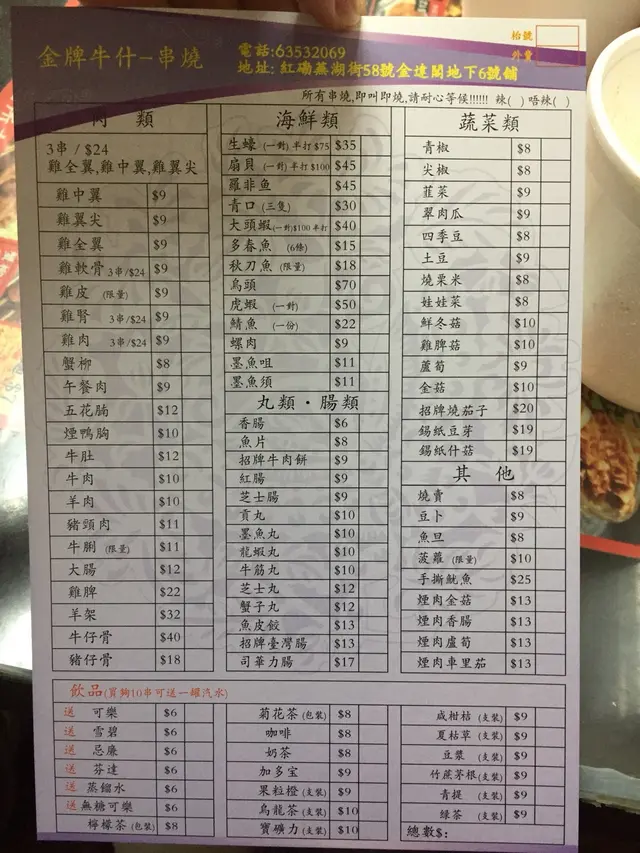 枱號
外賣
金牌牛什-串燒
電話:63532069
地址: 紅磡蕪湖街58號金達閣地下6號舖
所有串燒,即叫即燒,請耐心等候!!!!!! 辣( ) 唔辣( )
肉 類
3串 / $24
雞全翼,雞中翼,雞翼尖
雞中翼 $9
雞翼尖 $9
雞全翼 $9
雞軟骨 3串/$24 $9
雞皮 (限量) $9
雞腎 3串/$24 $9
雞肉 3串/$24 $9
蟹柳 $8
午餐肉 $9
五花腩 $12
煙鴨胸 $10
牛肚 $12
牛肉 $10
羊肉 $10
豬頭肉 $11
牛脷 (限量) $11
大腸 $12
雞髀 $22
羊架 $32
牛仔骨 $40
豬仔骨 $18
海鮮類
生蠔 (一對) 半打 $75 $35
扇貝 (一對) 半打 $100 $45
羅非魚 $45
青口 (三隻) $30
大頭蝦 (一對)$100 半打 $40
多春魚 (6條) $15
秋刀魚 (限量) $18
烏頭 $70
虎蝦 (一對) $50
鯖魚 (一份) $22
螺肉 $9
墨魚咀 $11
墨魚須 $11
丸類・腸類
香腸 $6
魚片 $8
招牌牛肉餅 $9
紅腸 $9
芝士腸 $9
貢丸 $10
墨魚丸 $10
龍蝦丸 $10
牛筋丸 $10
芝士丸 $12
蟹子丸 $12
魚皮餃 $13
招牌臺灣腸 $13
司華力腸 $17
蔬菜類
青椒 $8
尖椒 $8
韮菜 $9
翠肉瓜 $9
四季豆 $8
土豆 $9
燒粟米 $8
娃娃菜 $8
鮮冬菇 $10
雞脾菇 $10
蘆筍 $9
金菇 $10
招牌燒茄子 $20
錫紙豆芽 $19
錫紙什菇 $19
其 他
燒賣 $8
豆卜 $9
魚旦 $8
菠蘿 (限量) $10
手撕魷魚 $25
煙肉金菇 $13
煙肉香腸 $13
煙肉蘆筍 $13
煙肉車里茄 $13
飲品(買夠10串可送一罐汽水)
送 可樂 $6
送 雪碧 $6
送 忌廉 $6
送 芬達 $6
送 蒸餾水 $6
送 無糖可樂 $6
檸檬茶 (包裝) $8
菊花茶 (包裝) $8
咖啡 $8
奶茶 $8
加多宝 $9
果粒橙 (支裝) $9
烏龍茶 (支裝) $10
寶礦力 (支裝) $10
咸柑桔 (支裝) $9
夏枯草 (支裝) $9
豆漿 (支裝) $9
竹蔗茅根 (支裝) $9
青提 (支裝) $9
綠茶 (支裝) $9
總數$: